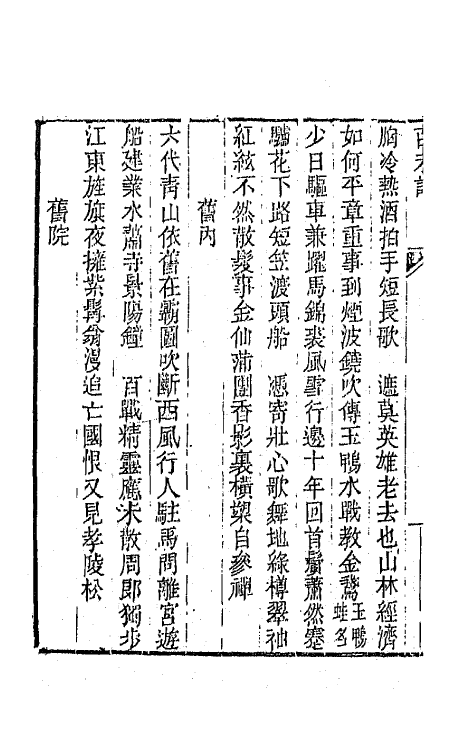 胸冷熱酒拍手短長歌　遮莫英雄老去也山林經濟
如何平章重事到煙波鐃吹傳玉鴨水戰教金鵞玉鴨蛙名
少日驅車兼躍馬錦裘風雪行邊十年回首鬢蕭然蹇
驢花下路短笠渡頭船　憑寄壯心歌舞地綠樽翠袖
紅絃不然散髮事金仙蒲團香影裏橫槊自參禪
舊內
六代青山依舊在霸圖吹斷西風行人駐馬問離宮遊
船建業水蕭寺景陽鐘　百戰精靈應未散周郎獨步
江東旌旗夜擁紫髯翁漫追亡國恨又見孝陵松
舊院